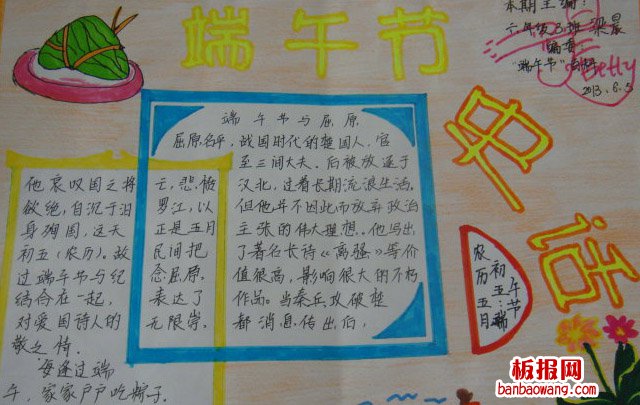 端午节
本期主编：
六年级3班 梁晨
编者：
"端午节"
Betty
2013.6.5
话
端午节与屈原
屈原名平，战国时代的楚国人，官
至三闾大夫，后被放逐于
汉北，过着长期流浪生活。
但他并不因此而放弃政治
主张的伟大理想。他写出
了著名长诗《离骚》等价
值很高，影响很大的不朽
作品。当秦兵攻破楚
都消息传出后，
他哀叹国之将亡，悲被
欲绝，自沉于汨罗江，以
身殉国，这天正是五月
初五（农历）。故民间把
过端午节与纪念屈原，
结合在一起，表达了
对爱国诗人的无限崇
敬之情
每逢过端
午，家家户户吃粽子.
农历五月
初五：端
午节
板报网
www.banbaowang.com